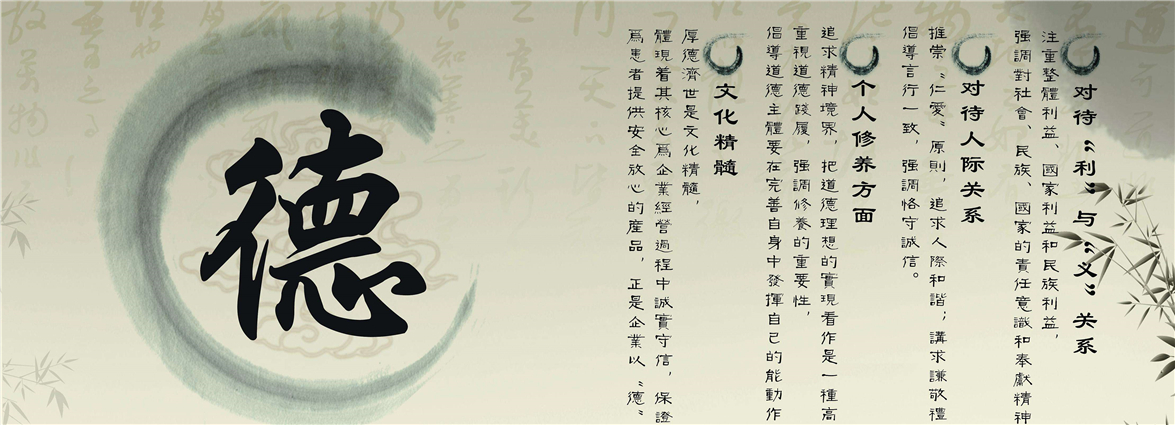 对待“利”与“义”关系
注重整體利益、國家利益和民族利益，
强調對社會、民族、國家的責任意識和奉獻精神
对待人际关系
推崇“仁愛”原則，追求人際和諧；講求謙敬禮
倡導言行一致，强調恪守誠信。
个人修养方面
追求精神境界，把道德理想的實現看作是一種高
重視道德踐履，强調修養的重要性，
倡導道德主體要在完善自身中發揮自已的能動作
文化精髓
厚德濟世是文化精髓，
體現着其核心爲企業經營過程中誠實守信，保證
爲患者提供安全放心的産品，正是企業以“德”
德